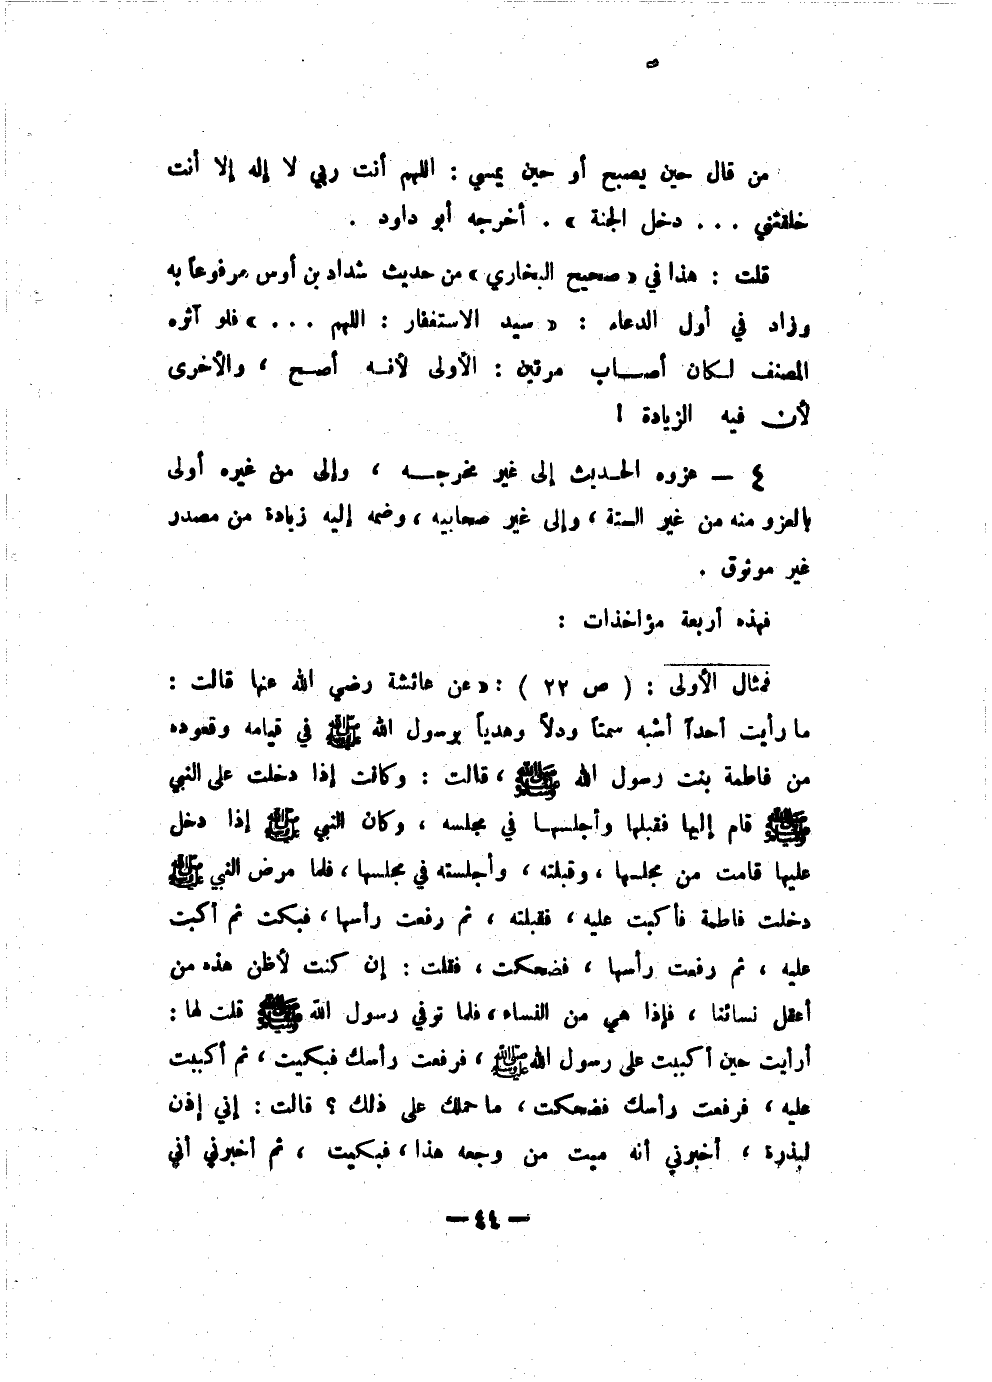 من قال حين يصبح أو حين يمسي : اللهم أنت ربي لا إله إلا أنت
خلقتني . . . دخل الجنة » . أخرجه أبو داود .
قلت : هذا في « صحيح البخاري » من حديث شداد بن أوس مرفوعاً به
وزاد في أول الدعاء : « سيد الاستغفار : اللهم . . . » فلو آثره
المصنف لكان أصاب مرتين : الأولى لأنه أصح ، والأخرى
لأن فيه الزيادة !
٤ – عزوه الحديث إلى غير مخرجه ، وإلى من غيره أولى
بالعزو منه من غير الستة ، وإلى غير صحابيه ، وضمه إليه زيادة من مصدر
غير موثوق .
فهذه أربعة مؤاخذات :
فمثال الأولى : ( ص ٢٢ ) : « عن عائشة رضي الله عنها قالت :
ما رأيت أحداً أشبه سمتاً ودلاً وهدياً برسول الله ﷺ في قيامه وقعوده
من فاطمة بنت رسول الله ﷺ ، قالت : وكانت إذا دخلت على النبي
ﷺ قام إليها فقبلها وأجلسها في مجلسه ، وكان النبي ﷺ إذا دخل
عليها قامت من مجلسها ، وقبلته ، وأجلسته في مجلسها ، فلما مرض النبي ﷺ
دخلت فاطمة فأكبت عليه ، فقبلته ، ثم رفعت رأسها ، فبكت ثم أكبت
عليه ، ثم رفعت رأسها ، فضحكت ، فقلت : إن كنت لأظن هذه من
أعقل نسائنا ، فإذا هي من النساء ، فلما توفي رسول الله ﷺ قلت لها :
أرأيت حين أكببت على رسول الله ﷺ ، فرفعت رأسك فبكيت ، ثم أكببت
عليه ، فرفعت رأسك فضحكت ، ما حملك على ذلك ؟ قالت : إني إذن
لبذرة ، أخبرني أنه ميت من وجعه هذا ، فبكيت ، ثم أخبرني أني
– ٤٤ –